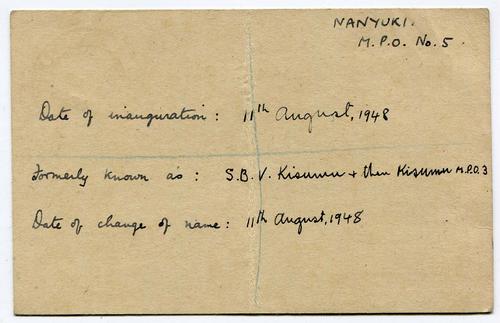 NANYUKI.
M.P.O. No. 5.
Date of inauguration: 11th August, 1948
Formerly known as: S.B.V. Kisumu + then Kisumu M.P.O. 3
Date of change of name: 11th August, 1948